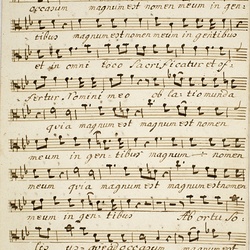 occasum magnum est nomen meum in gen:
tibus magnum est nomen meum in gentibus
et in omni loco Sacrificatur et of:
fertur Nomini meo ob la tio munda
quia magnum est magnum est nomen
meum in gen: tibus magnum nomen
meum quia magnum est magnum est nomen
meum in gen: tibus Ab ortu So:
lis usq ad occasum magnum est